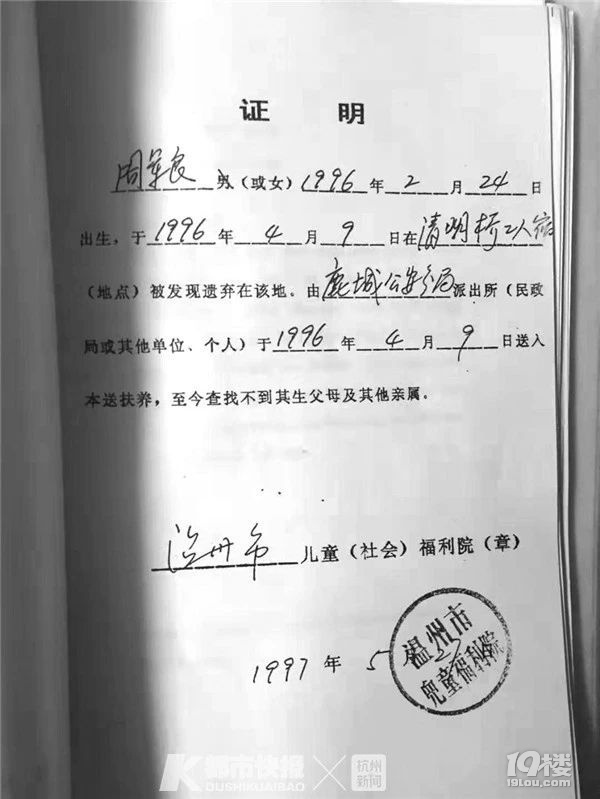 证 明
周军良 男（或女）1996年2月24日
出生，于1996年4月9日在清明桥工人宿
（地点）被发现遗弃在该地。由鹿城公安分局派出所（民政
局或其他单位、个人）于1996年4月9日送入
本送扶养，至今查找不到其生父母及其他亲属。
温州市儿童（社会）福利院（章）
1997年5
温州市
儿童福利院
K都市快报 × 杭州新闻
DUSHIKUAIBAO
19楼
19lou.com